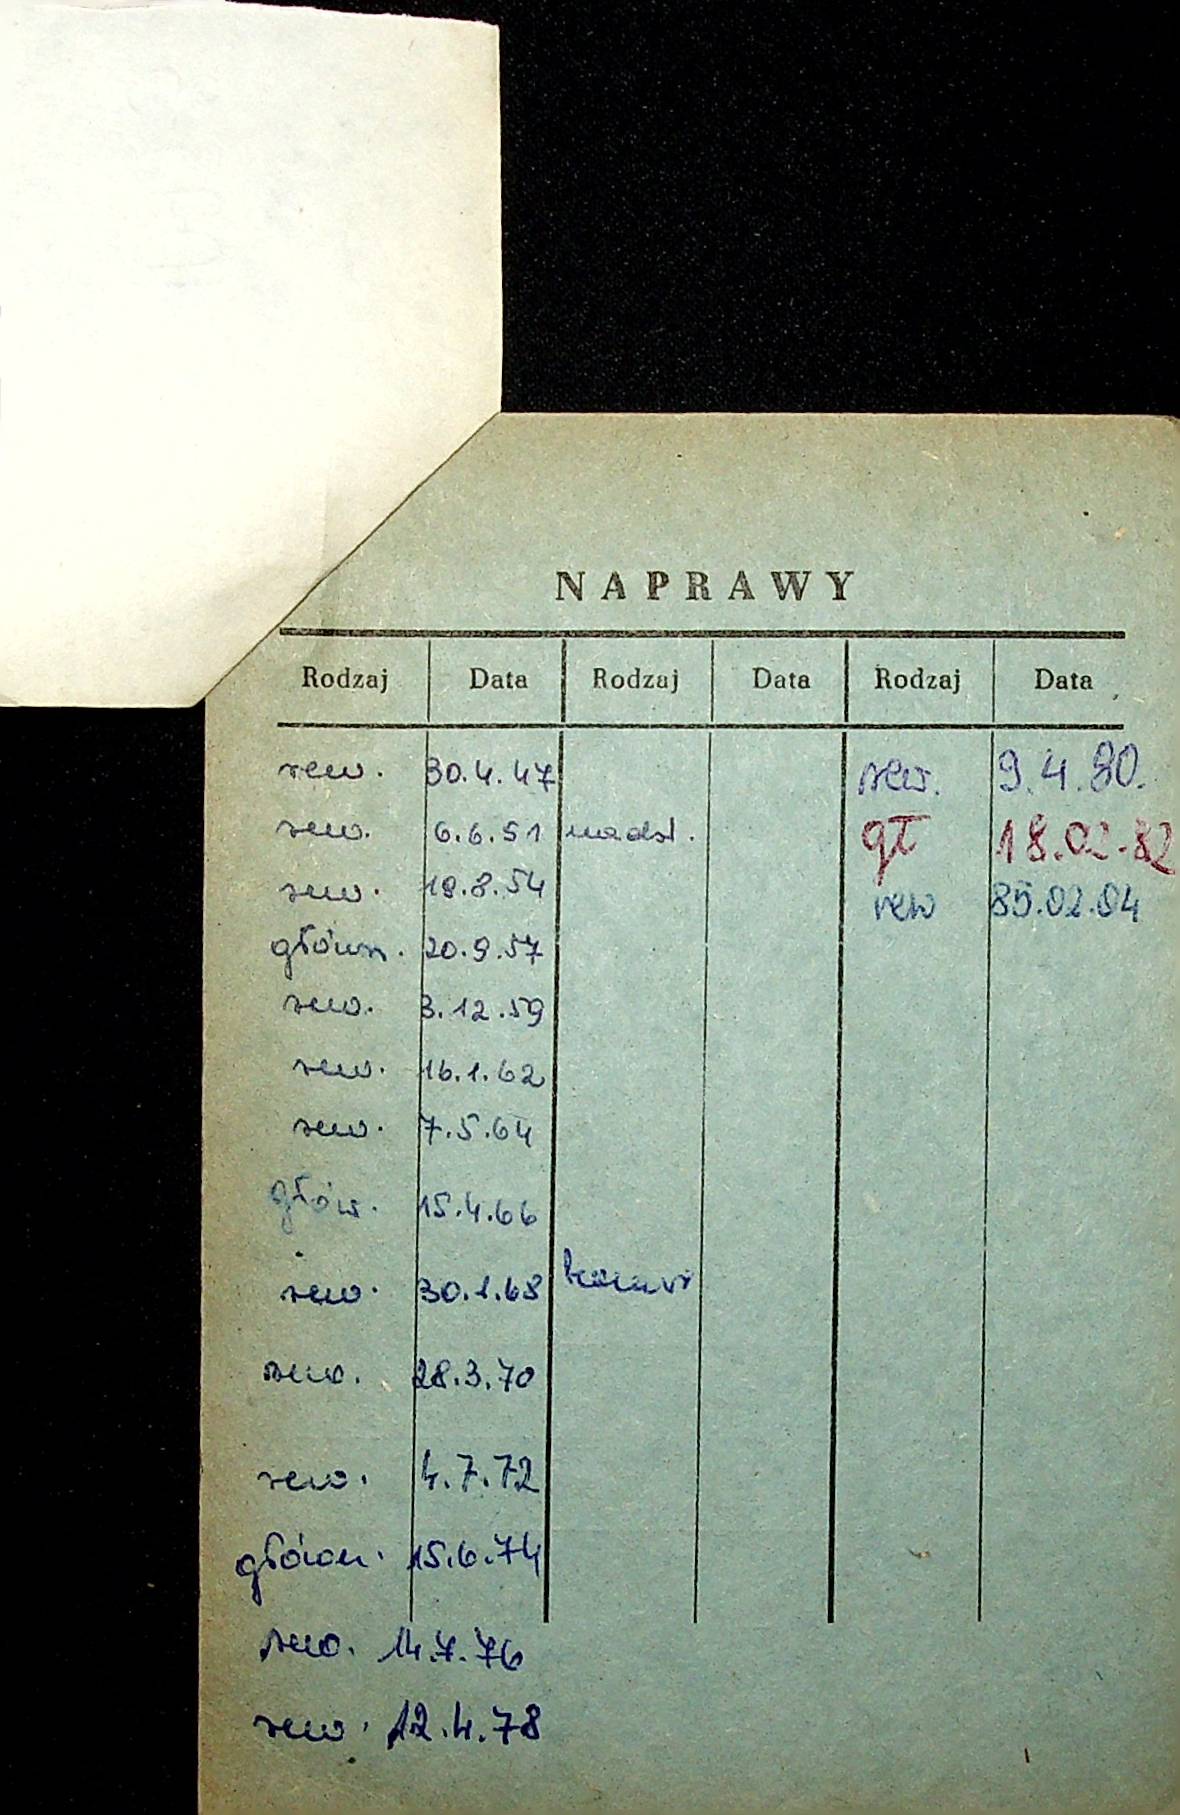 NAPRAWY
Rodzaj Data Rodzaj Data Rodzaj Data
rew. 30.4.47 rew. 9.4.80.
rew. 6.6.51 nadst. gł 18.02.82
rew. 19.8.54 rew 85.02.04
główn. 20.9.57
rew. 3.12.59
rew. 16.1.62
rew. 7.5.64
głów. 15.4.66
rew. 30.1.68
rew. 28.3.70
rew. 4.7.72
główn. 15.6.74
rew. 14.7.76
rew. 12.4.78